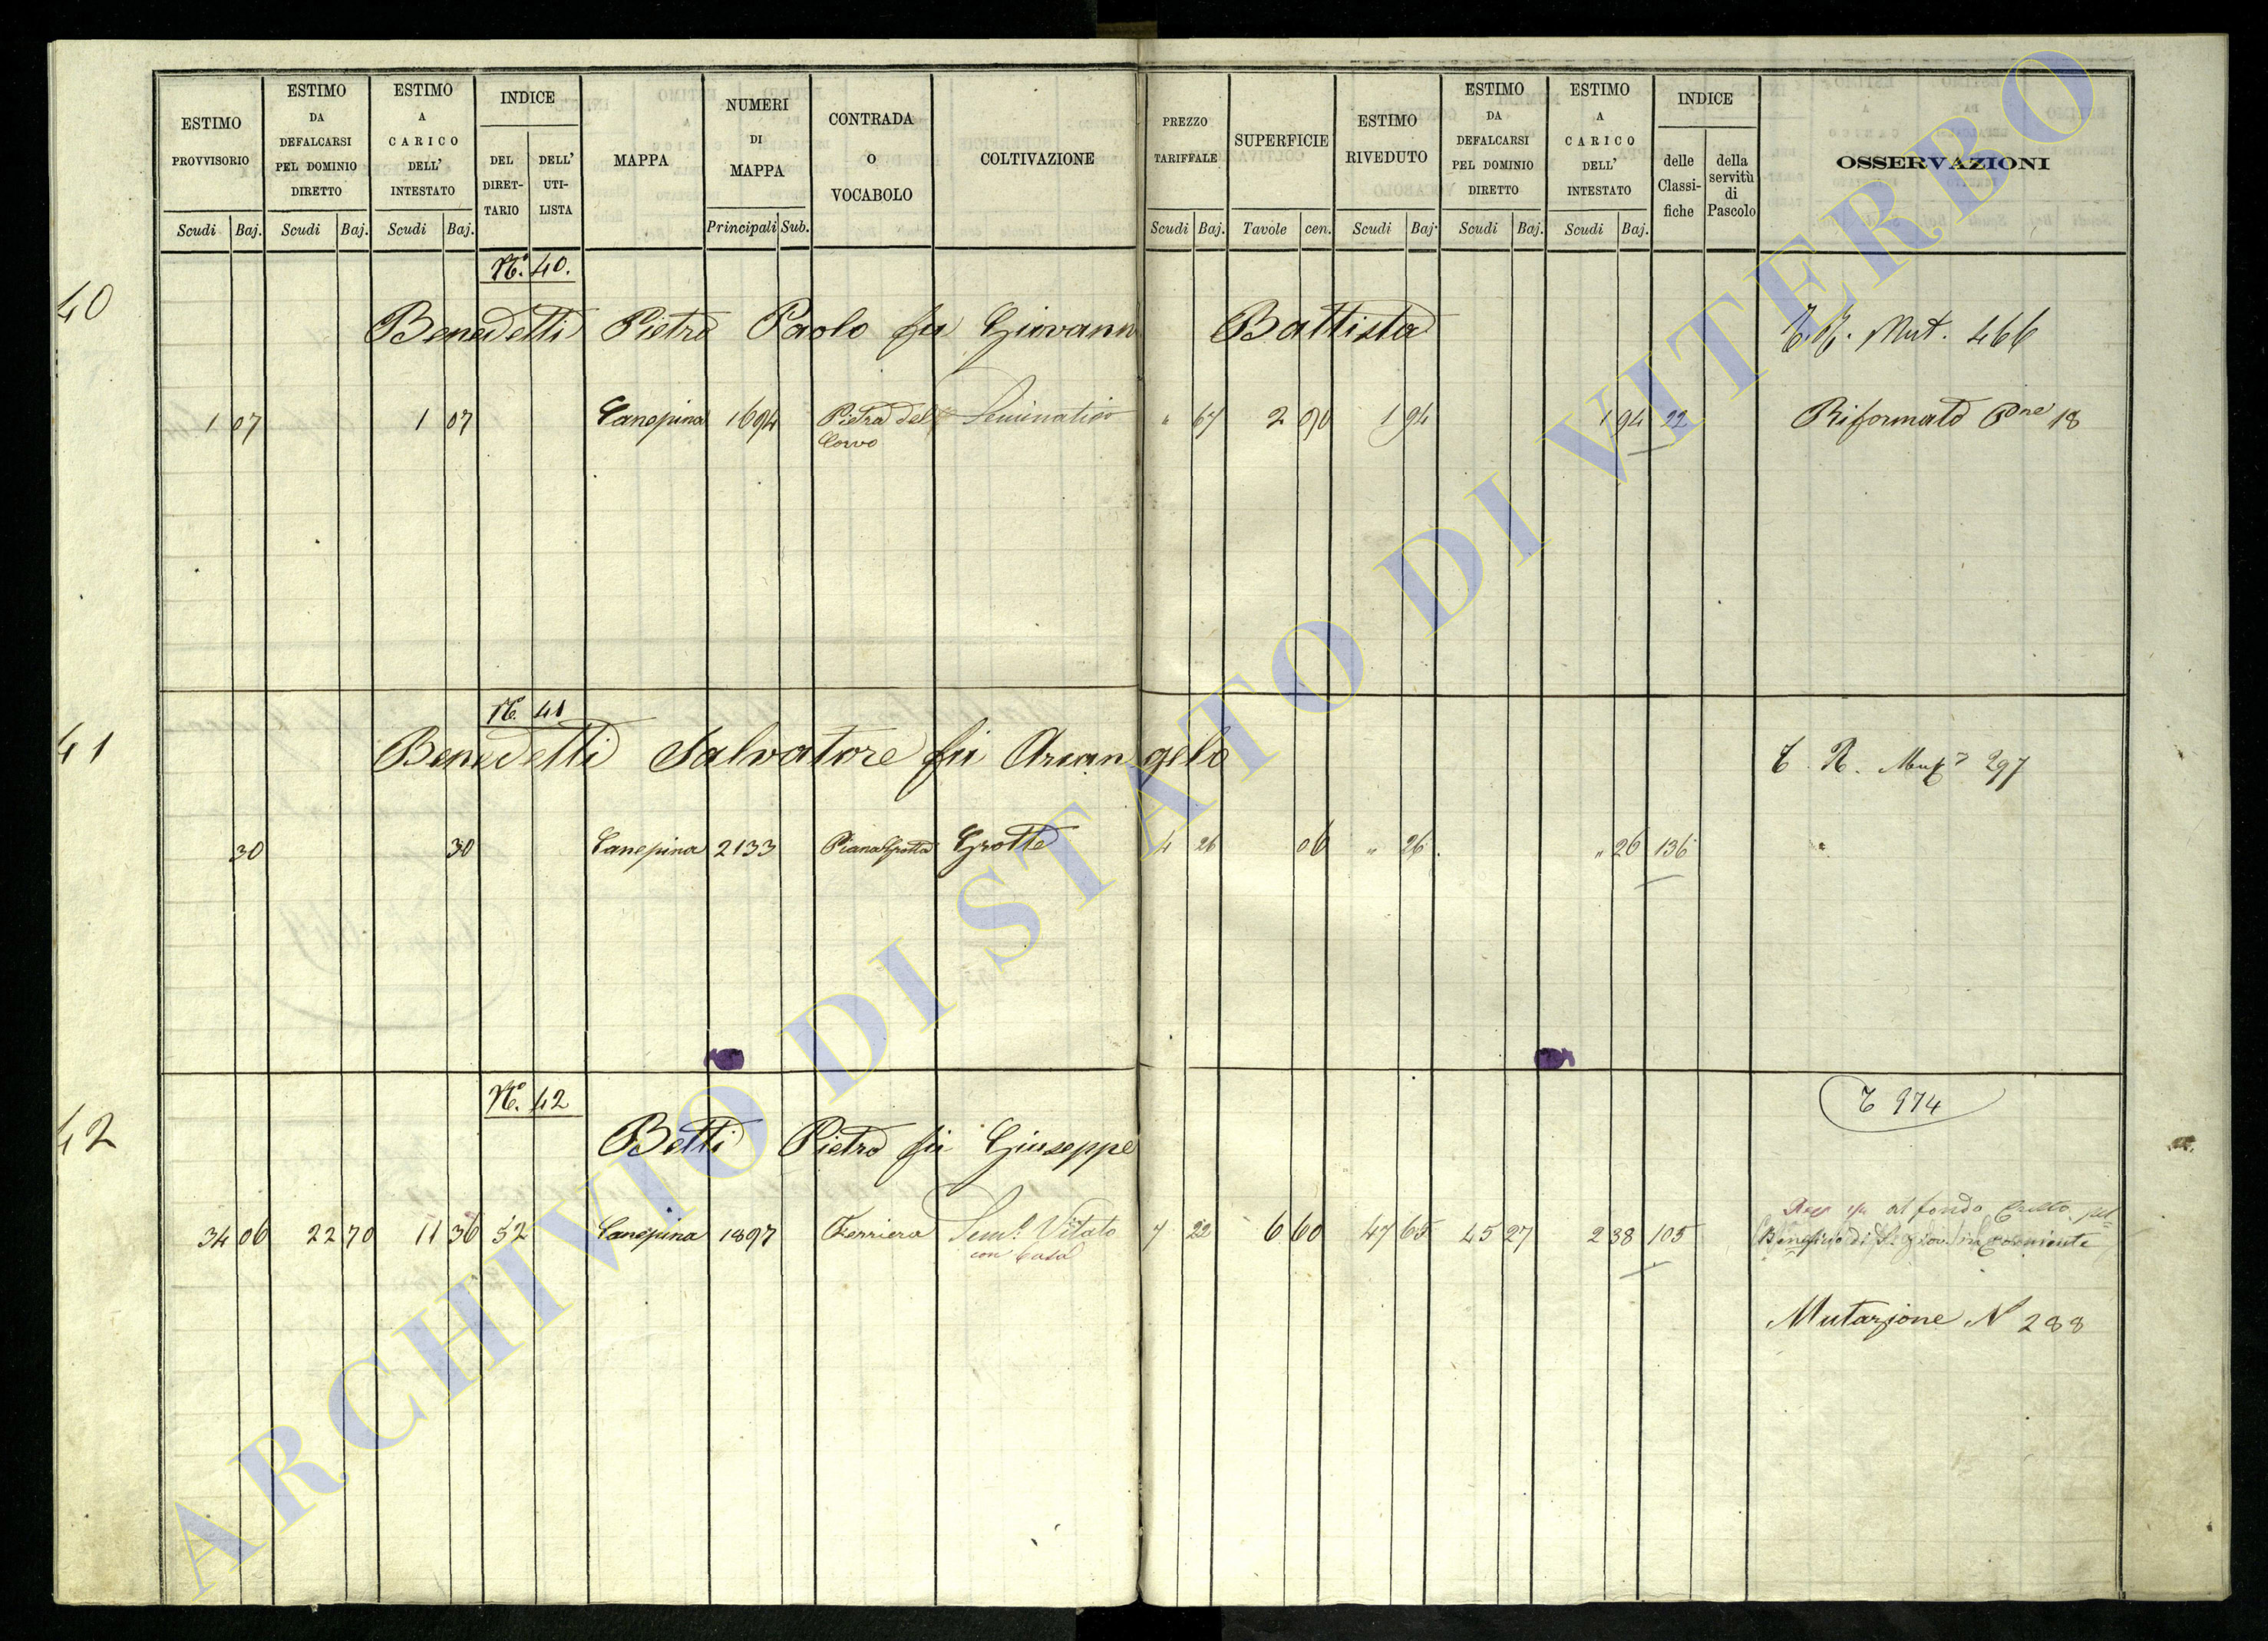 ESTIMO PROVVISORIO
ESTIMO DA DEFALCARSI PEL DOMINIO DIRETTO
ESTIMO A CARICO DELL' INTESTATO
INDICE
DEL DIRET- TARIO
DELL' UTI- LISTA
MAPPA
NUMERI DI MAPPA
CONTRADA O VOCABOLO
COLTIVAZIONE
PREZZO TARIFFALE
SUPERFICIE
ESTIMO RIVEDUTO
ESTIMO DA DEFALCARSI PEL DOMINIO DIRETTO
ESTIMO A CARICO DELL' INTESTATO
INDICE
delle Classi- fiche
della servitù di Pascolo
OSSERVAZIONI
Scudi Baj. Scudi Baj. Scudi Baj. Principali Sub. Scudi Baj. Tavole cen. Scudi Baj. Scudi Baj. Scudi Baj.
Nº. 40.
40
Benedetti Pietro Paolo fu Giovanni Battista Mut. 466
1 07 1 07 Canepina 1694 Pietra del Corvo Seminativo " 67 2 90 1 94 1 94 22 Riformato Pne 18
Nº. 41
41
Benedetti Salvatore fu Arcangelo T. R. 297
30 30 Canepina 2133 Piana Grotta Grotte 4 26 06 " 26 " 26 136
Nº. 42
T 974
42
Betti Pietro fu Giuseppe
34 06 22 70 11 36 52 Canepina 1897 Ferriera Semo. Vitato con Casa 7 22 6 60 47 65 45 27 2 38 105
al fondo
Mutazione N 288
ARCHIVIO DI STATO DI VITERBO